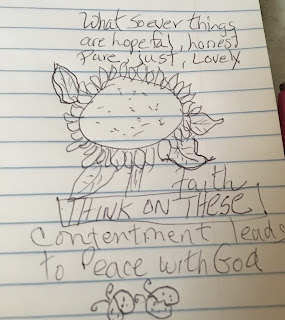 What so ever things
are hopeful, honest
Pure, just, Lovely
faith
THINK ON THESE
Contentment leads
to Peace with God